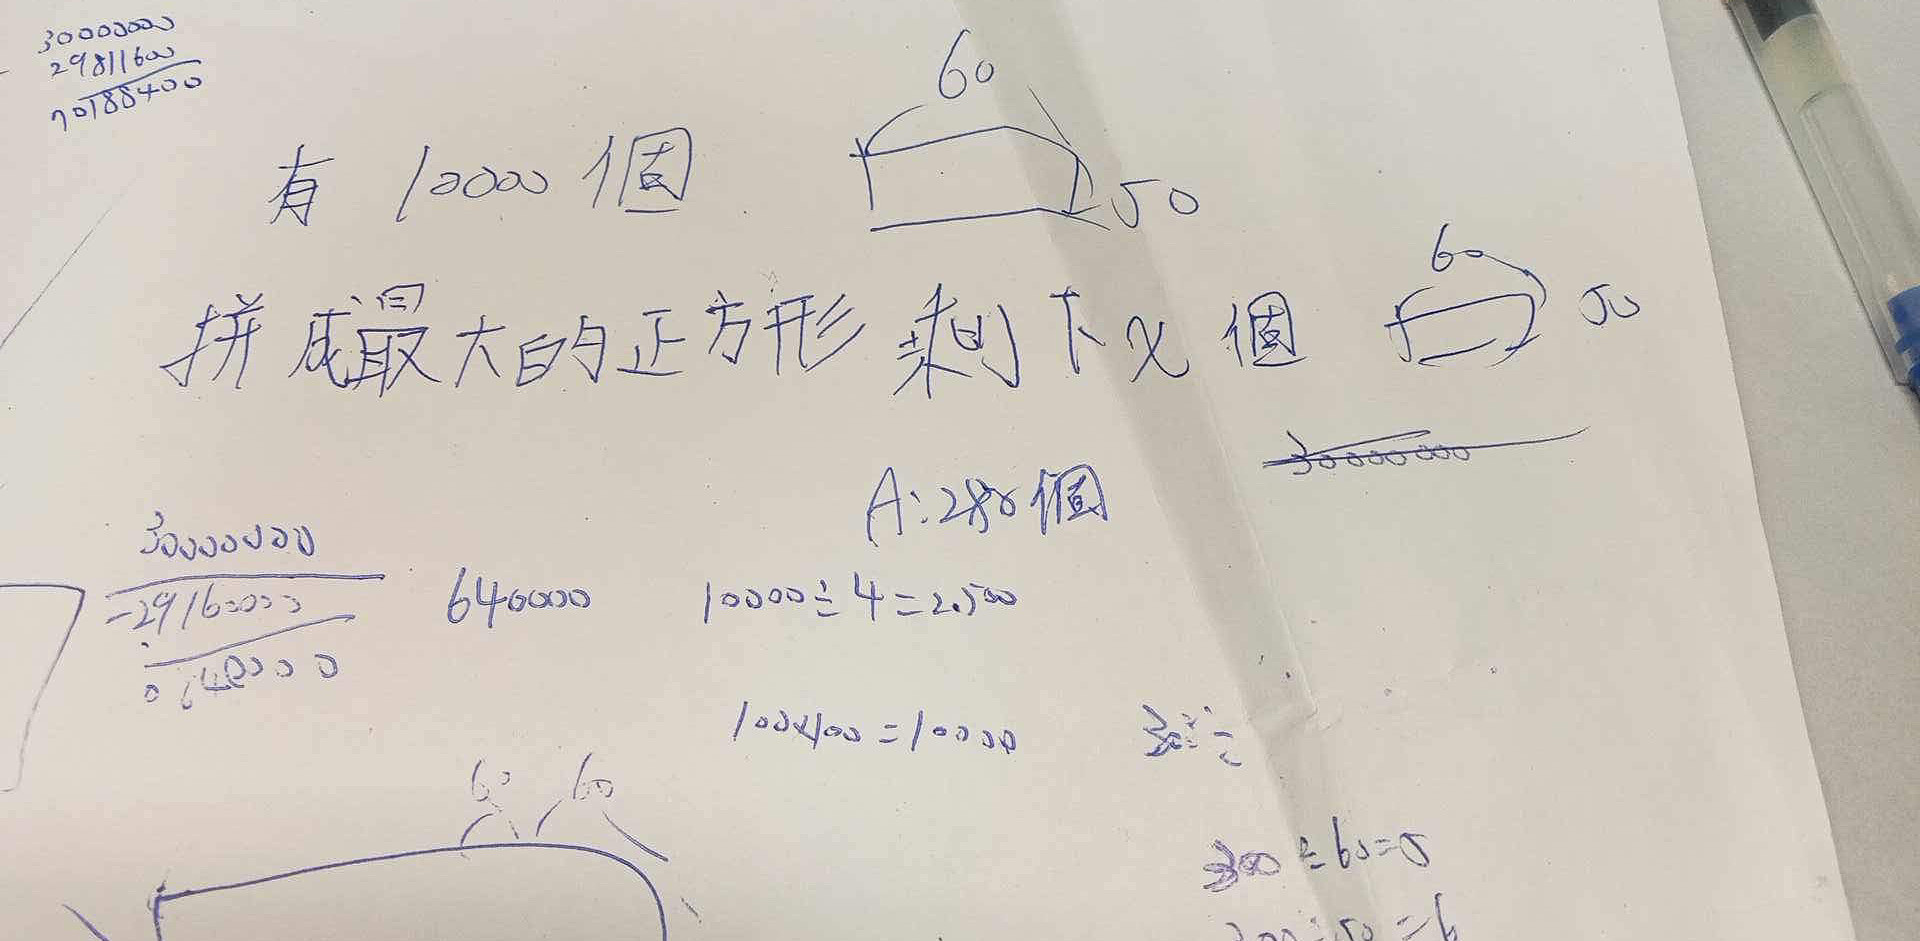 30000000
29811600
70188400
60
有 10000 個
50
60
拼成最大的正方形剩下x個
50
30000000
A:280個
30000000
-29160000
0840000
640000
10000÷4=2500
100×100=10000
60 60
300÷60=5
300÷50=6